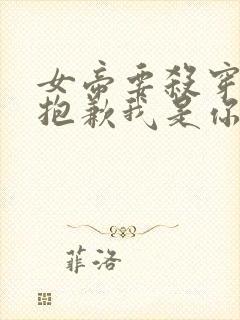 女帝要殺穿
抱歉我是你
菲洛